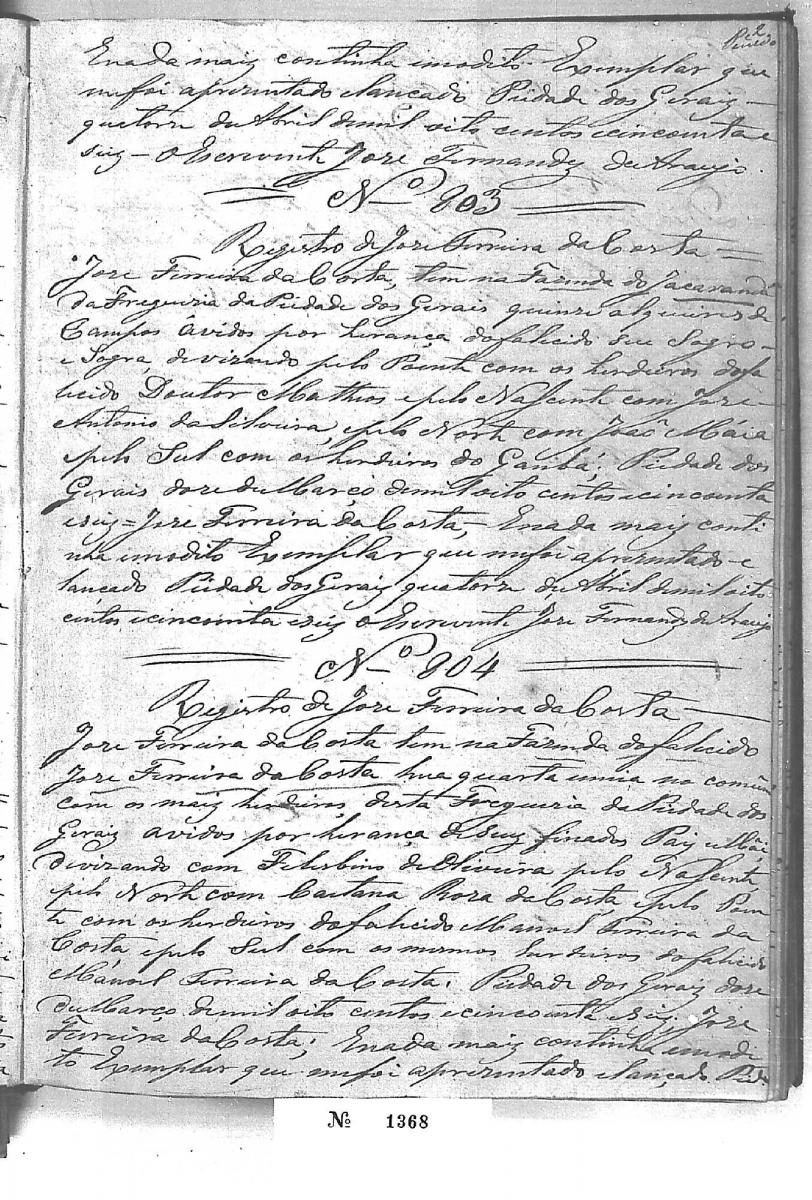 Enada maiz continha emodito Exemplar que
mefoi aprezentado elançado Piedade dos Geraiz
quatorze de Abril demil oito centos ecincoenta e
seiz — O Escrevente Joze Fernandez de Araujo
Nº 803
Registro de Joze Ferreira da Costa
Joze Ferreira da Costa, tem na Fazenda do Jacarandá
da Freguezia da Piedade dos Gerais quinze alqueires de
Campos ávidos por herança dofalecido seu Sogro
e Sogra, devizando pelo Poente com os herdeiros dofa
lecido Doutor Matheos epelo Nascente com Joze
Antonio da Silveira, epelo Norte com João Máia
epelo Sul com os herdeiros do Ganbá; Piedade dos
Gerais doze de Março demil oito centos ecincoenta
eseiz = Joze Ferreira da Costa, — Enada maiz conti
nha emodito Exemplar que mefoi aprezentado e
lancado Piedade dos Geraiz quatorze de Abril demil oito
centos ecincoenta eseiz O Escrevente Joze Fernandz de Araujo
Nº 804
Registro de Joze Ferreira da Costa
Joze Ferreira da Costa tem na Fazenda dofalecido
Joze Ferreira da Costa hua quarta emeia no comũm
com os maiz herdeiros desta Freguezia da Piedade dos
Geraiz avidos por herança de seuz finados Pai eMãi,
devizando com Felisbino de Oliveira pelo Nascente,
epelo Norte com Caetana Roza da Costa, epelo Poen
te com osherdeiros dofalecido Manoel Ferreira da
Costa, epelo Sul com os mesmos herdeiros dofalecido
Mánoel Ferreira da Costa; Piedade dos Geraiz doze
de Março demil oito centos ecincoenta eseiz. Joze
Ferreira da Costa; Enada maiz continha emodi
to Exemplar que mefoi aprezentado elançado Pied
Nº 1368